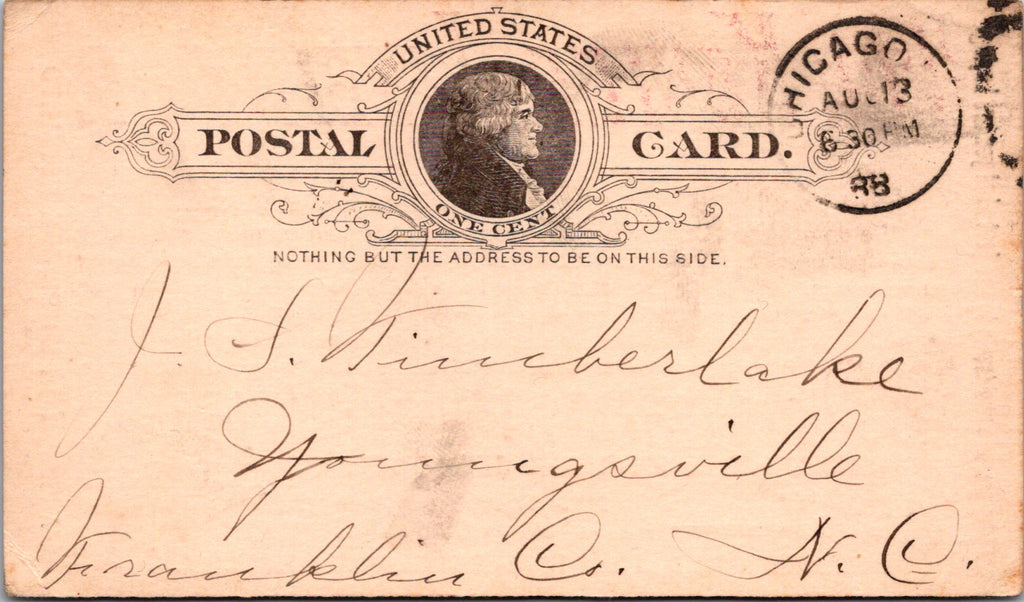 UNITED STATES
POSTAL CARD.
ONE CENT
NOTHING BUT THE ADDRESS TO BE ON THIS SIDE.
CHICAGO
AUG 13
6 30 PM
88
J. S. Timberlake
Youngsville
Franklin Co. N. C.